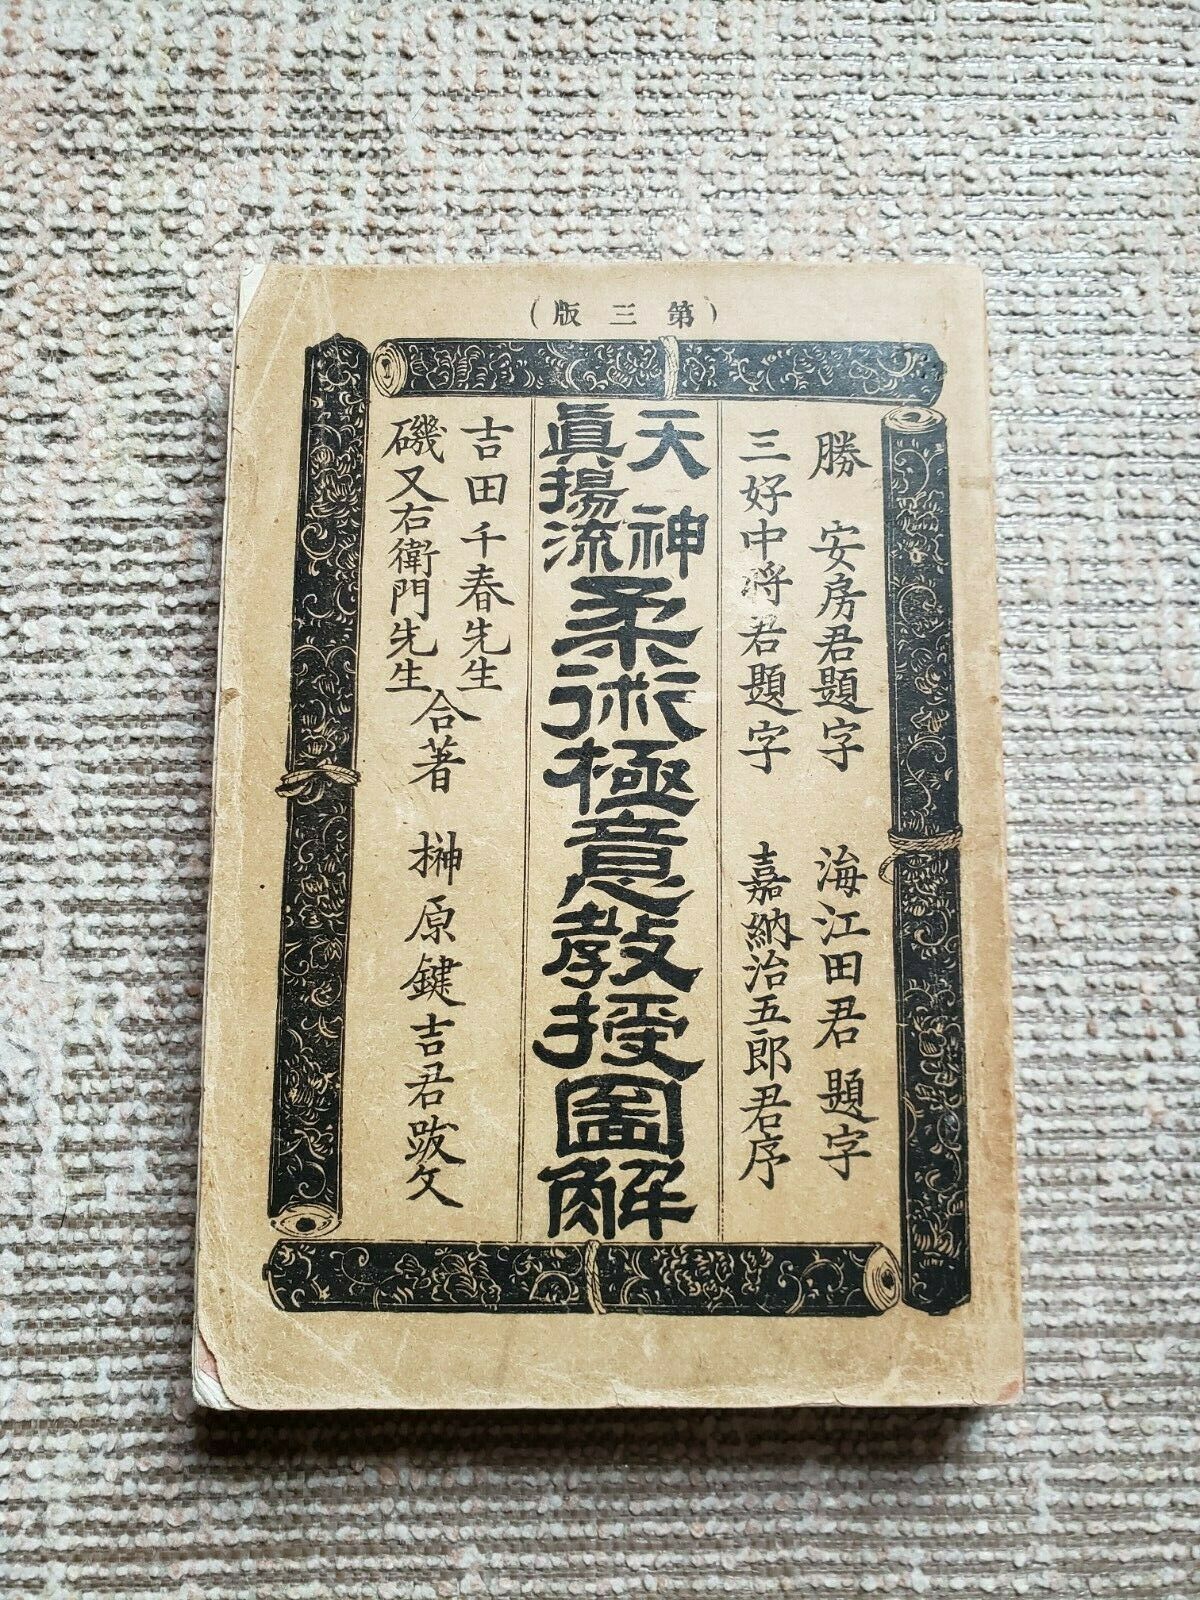 (第三版)
勝 安房君題字 海江田君題字
三好中将君題字 嘉納治五郎君序
天神
眞揚流
柔術極意教授圖解
吉田千春先生
磯又右衛門先生
合著 榊原鍵吉君跋文